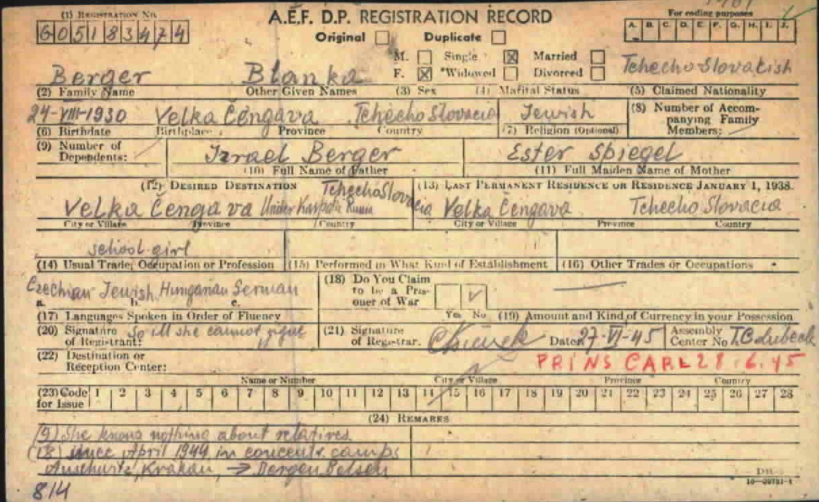 (1) REGISTRATION NO.
G05183474
A.E.F. D.P. REGISTRATION RECORD
Original Duplicate
For coding purposes
A. B. C. D. E. F. G. H. I. J.
M. Single Married
F. *Widowed Divorced
Berger Blanka Tchecho Slovakish
(2) Family Name Other Given Names (3) Sex (4) Marital Status (5) Claimed Nationality
24-VIII-1930 Velka Čengava Tchecho Slovacia Jewish
(8) Number of Accompanying Family Members:
(6) Birthdate Birthplace Province Country (7) Religion (Optional)
(9) Number of Dependents:
Izrael Berger Ester Spiegel
(10) Full Name of Father (11) Full Maiden Name of Mother
(12) DESIRED DESTINATION Tchecho Slovacia (13) LAST PERMANENT RESIDENCE OR RESIDENCE JANUARY 1, 1938.
Velka Čengava Under Karpato Velka Čengava Tchecho Slovacia
City or Village Province Country City or Village Province Country
school girl
(14) Usual Trade, Occupation or Profession (15) Performed in What Kind of Establishment (16) Other Trades or Occupations
Czechian Jewish Hungarian German
a. b. c.
(18) Do You Claim to be a Prisoner of War
Yes No
(17) Languages Spoken in Order of Fluency (19) Amount and Kind of Currency in your Possession
(20) Signature of Registrant: So ill she cannot signe
(21) Signature of Registrar. Date: 27-VI-45 Assembly Center No. T.C. Lubeck
(22) Destination or Reception Center:
PRINS CARL 28.6.45
Name or Number City or Village Province Country
(23) Code for Issue 1 2 3 4 5 6 7 8 9 10 11 12 13 14 15 16 17 18 19 20 21 22 23 24 25 26 27 28
(24) REMARKS
(9) She knows nothing about relatives
(18) since April 1944 in concentr. camps
Auschwitz, Krakau, → Bergen Belsen
814